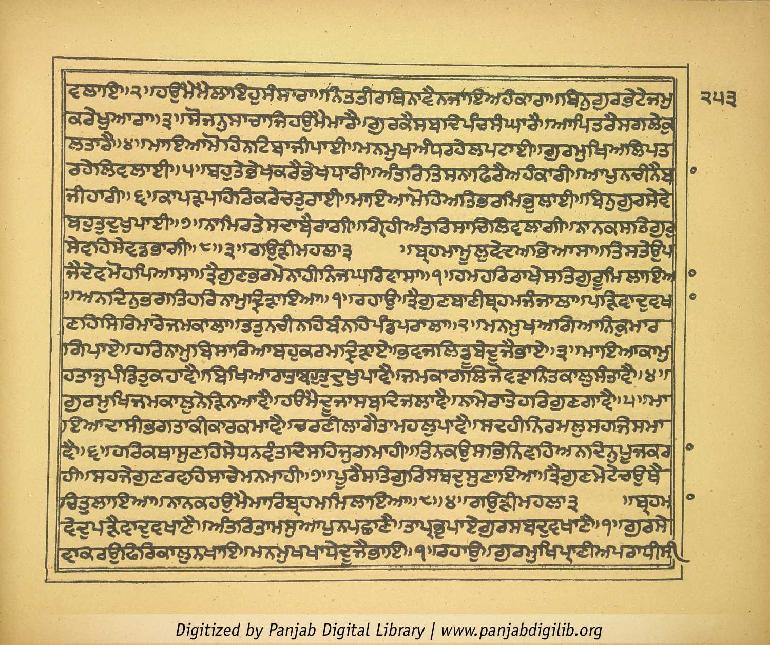 ੨੫੩
ਵਲਾਇ॥੨॥ਹਉਮੈਮੈਲਾਇਹੁਸੰਸਾਰਾ॥ਨਿਤਤੀਰਥਿਨਾਵੈਨਜਾਇਅਹੰਕਾਰਾ॥ਬਿਨੁਗੁਰਭੇਟੇਜਮੁ
ਕਰੇਖੁਆਰਾ॥੩॥ਸੋਜਨੁਸਾਚਾਜਿਹਉਮੈਮਾਰੈ॥ਗੁਰਕੈਸਬਦਿਪੰਚਸੰਘਾਰੈ॥ਆਪਿਤਰੈਸਗਲੇਕੁ
ਲਤਾਰੈ॥੪॥ਮਾਇਆਮੋਹਿਨਟਿਬਾਜੀਪਾਈ॥ਮਨਮੁਖਅੰਧਰਹੇਲਪਟਾਈ॥ਗੁਰਮੁਖਿਅਲਿਪਤ
ਰਹੇਲਿਵਲਾਈ॥੫॥ਬਹੁਤੇਭੇਖਕਰੈਭੇਖਧਾਰੀ॥ਅੰਤਰਿਤਿਸਨਾਫਿਰੈਅਹੰਕਾਰੀ॥ਆਪੁਨਚੀਨੈਬ
ਜੀਹਾਰੀ॥੬॥ਕਾਪੜਪਹਿਰਿਕਰੇਚਤੁਰਾਈ॥ਮਾਇਆਮੋਹਿਅਤਿਭਰਮਿਭੁਲਾਈ॥ਬਿਨੁਗੁਰਸੇਵੇ
ਬਹੁਤੁਦੁਖੁਪਾਈ॥੭॥ਨਾਮਿਰਤੇਸਦਾਬੈਰਾਗੀ॥ਗ੍ਰਿਹੀਅੰਤਰਿਸਾਚਿਲਿਵਲਾਗੀ॥ਨਾਨਕਸਤਿਗੁਰੁ
ਸੇਵਹਿਸੇਵਡਭਾਗੀ॥੮॥੩॥ਗਉੜੀਮਹਲਾ੩ ॥ਬ੍ਰਹਮਾਮੂਲੁਵੇਦਅਭਿਆਸਾ॥ਤਿਸਤੇਉਪ
ਜੇਦੇਵਮੋਹਪਿਆਸਾ॥ਤ੍ਰੈਗੁਣਭਰਮੇਨਾਹੀਨਿਜਘਰਿਵਾਸਾ॥੧॥ਹਮਹਰਿਰਾਖੇਸਤਿਗੁਰੂਮਿਲਾਇਆ
॥ਅਨਦਿਨੁਭਗਤਿਹਰਿਨਾਮੁਦ੍ਰਿੜਾਇਆ॥੧॥ਰਹਾਉ॥ਤ੍ਰੈਗੁਣਬਾਣੀਬ੍ਰਹਮਜੰਜਾਲਾ॥ਪੜਿਵਾਦੁਵਖ
ਣਹਿਸਿਰਿਮਾਰੇਜਮਕਾਲਾ॥ਤਤੁਨਚੀਨਹਿਬੰਨਹਿਪੰਡਪਰਾਲਾ॥੨॥ਮਨਮੁਖਅਗਿਆਨਿਕੁਮਾਰ
ਗਿਪਾਏ॥ਹਰਿਨਾਮੁਬਿਸਾਰਿਆਬਹੁਕਰਮਦ੍ਰਿੜਾਏ॥ਭਵਜਲਿਡੂਬੇਦੂਜੈਭਾਏ॥੩॥ਮਾਇਆਕਾਮੁ
ਹਤਾਜੁਪੰਡਿਤੁਕਹਾਵੈ॥ਬਿਖਿਆਰਾਤਾਬਹੁਤੁਦੁਖੁਪਾਵੈ॥ਜਮਕਾਗਲਿਜੇਵੜਾਨਿਤਕਾਲੁਸੰਤਾਵੈ॥੪॥
ਗੁਰਮੁਖਿਜਮਕਾਲੁਨੇੜਿਨਆਵੈ॥ਹਉਮੈਦੂਜਾਸਬਦਿਜਲਾਵੈ॥ਨਾਮੇਰਾਤੇਹਰਿਗੁਣਗਾਵੈ॥੫॥ਮਾ
ਇਆਦਾਸੀਭਗਤਾਕੀਕਾਰਕਮਾਵੈ॥ਚਰਣੀਲਾਗੈਤਾਮਹਲੁਪਾਵੈ॥ਸਦਹੀਨਿਰਮਲੁਸਹਜਿਸਮਾ
ਵੈ॥੬॥ਹਰਿਕਥਾਸੁਣਹਿਸੇਧਨਵੰਤਦਿਸਹਿਜੁਗਮਾਹੀ॥ਤਿਨਕਉਸਭਿਨਿਵਹਿਅਨਦਿਨੁਪੂਜਕਰ
ਹੀ॥ਸਹਜੇਗੁਣਰਵਹਿਸਾਚੇਮਨਮਾਹੀ॥੭॥ਪੂਰੈਸਤਿਗੁਰਿਸਬਦੁਸੁਣਾਇਆ॥ਤ੍ਰੈਗੁਣਮੇਟੇਚਉਥੈ
ਚਿਤੁਲਾਇਆ॥ਨਾਨਕਹਉਮੈਮਾਰਿਬ੍ਰਹਮਮਿਲਾਇਆ॥੮॥੪॥ਗਉੜੀਮਹਲਾ੩ ॥ਬ੍ਰਹਮ
ਵੇਦੁਪੜੈਵਾਦੁਵਖਾਣੈ॥ਅੰਤਰਿਤਾਮਸੁਆਪੁਨਪਛਾਣੈ॥ਤਾਪ੍ਰਭੁਪਾਏਗੁਰਸਬਦੁਵਖਾਣੈ॥੧॥ਗੁਰਸੇ
ਵਾਕਰਉਫਿਰਿਕਾਲੁਨਖਾਇ॥ਮਨਮੁਖਖਾਧੇਦੂਜੈਭਾਇ॥੧॥ਰਹਾਉ॥ਗੁਰਮੁਖਿਪ੍ਰਾਣੀਅਪਰਾਧੀਸੀ
Digitized by Panjab Digital Library | www.panjabdigilib.org